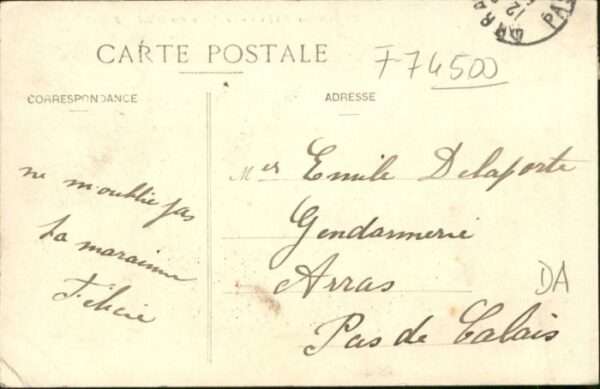 CARTE POSTALE
F74500
CORRESPONDANCE
ADRESSE
ne m'oublie pas
ta marainne
Félicie
Mer Emile Delaporte
Gendarmerie
Arras
Pas de Calais
DA
ARRA
12
PAS